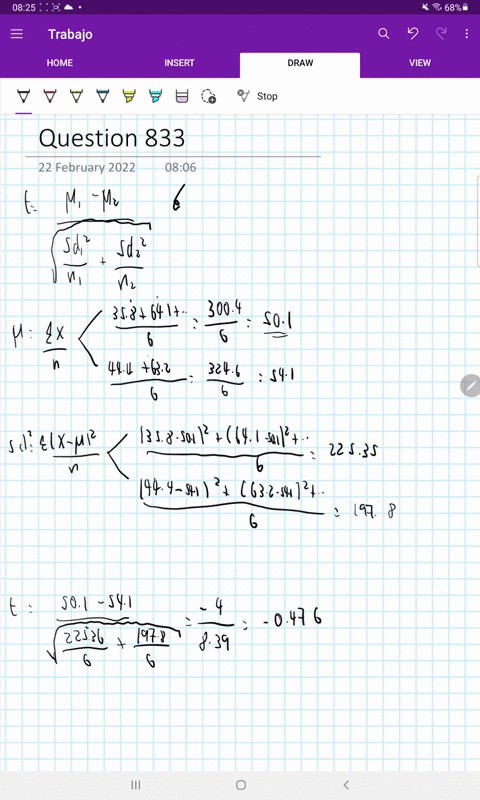 08:25
68%
Trabajo
HOME INSERT DRAW VIEW
Stop
Question 833
22 February 2022 08:06
t= μ₁ - μ₂ 6
sd₁² + sd₂²
n₁ n₂
μ = ΣX
n
35.8+64.1+.. = 300.4 = 50.1
6 6
44.4 + 63.2 = 324.6 = 54.1
6 6
sd² = Σ(X-μ)²
n
(35.8-50.1)² + (64.1-50.1)² + .. = 225.35
6
(44.4-54.1)² + (63.2-54.1)² + .. = 197.8
6
t = 50.1 - 54.1 = -4 = -0.476
√ 225.36 + 197.8 8.39
6 6